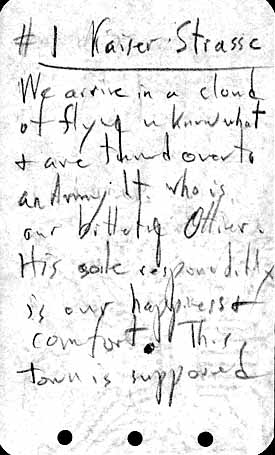 # 1 Kaiser Strasse
We arrive in a cloud
of flying u know what
& are turned over to
an Army Lt. who is
our billeting Officer.
His sole responsibility
is our happiness &
comfort. This
town is supposed